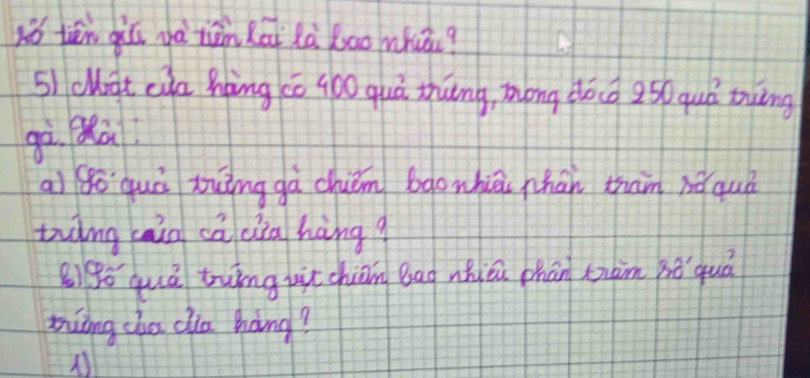 số tiền gửi và tiền lãi là bao nhiêu?
5) Một cửa hàng có 400 quả trứng, trong đó có 250 quả trứng
gà. Hỏi:
a) Số quả trứng gà chiếm bao nhiêu phần trăm số quả
trứng của cả cửa hàng?
b) Số quả trứng vịt chiếm bao nhiêu phần trăm số quả
trứng của cửa hàng?
1)